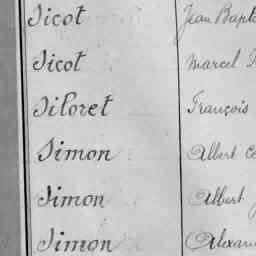 Sicot Jean Bapt
Sicot Marcel
Siloret François
Simon Albert
Simon Albert
Simon Alexan